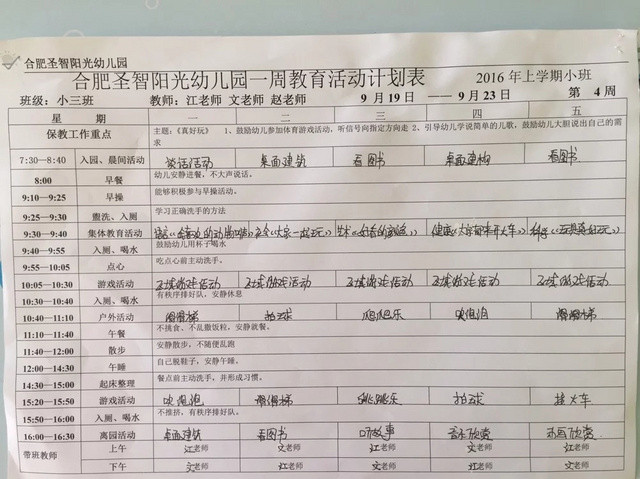 合肥圣智阳光幼儿园
合肥圣智阳光幼儿园一周教育活动计划表 2016年上学期小班
班级：小三班 教师：江老师 文老师 赵老师 9月19日 ——9月23日 第 4 周
星 期 一 二 三 四 五
保教工作重点 主题：《真好玩》 1、鼓励幼儿参加体育游戏活动，听信号向指定方向走 2、引导幼儿学说简单的儿歌，鼓励幼儿大胆说出自己的需求
7:30—8:40 入园、晨间活动 谈话活动 桌面建筑 看图书 桌面建构 看图书
8:00 早餐 幼儿安静进餐，不大声说话。
9:10—9:25 早操 能够积极参与早操活动。
9:25—9:30 盥洗、入厕 学习正确洗手的方法
9:30—9:40 集体教育活动
9:40—9:55 入厕、喝水 鼓励幼儿用杯子喝水
9:55—10:05 点心 吃点心前主动洗手。
10:05—10:30 游戏活动 区域游戏活动 区域游戏活动 区域游戏活动 区域游戏活动 区域游戏活动
10:30—10:40 入厕、喝水 有秩序排好队，安静休息
10:40—11:10 户外活动 滑滑梯 拍球 爬爬乐 吹泡泡 滑滑梯
11:10—11:40 午餐 不挑食、不乱撒饭粒，安静就餐。
11:40—12:00 散步 安静散步，不随便乱跑
12:00—14:30 午睡 自己脱鞋子，安静午睡。
14:30—15:00 起床整理 餐点前主动洗手，并形成习惯。
15:20—15:50 游戏活动 吹泡泡 滑滑梯 跳跳乐 拍球 接火车
15:50—16:00 入厕、喝水 不推挤，有秩序排好队。
16:00—16:30 离园活动 桌面建筑 看图书 听故事 音乐欣赏 动画欣赏
带班教师 上午 江老师 文老师 江老师 文老师 江老师
下午 文老师 江老师 文老师 江老师 文老师